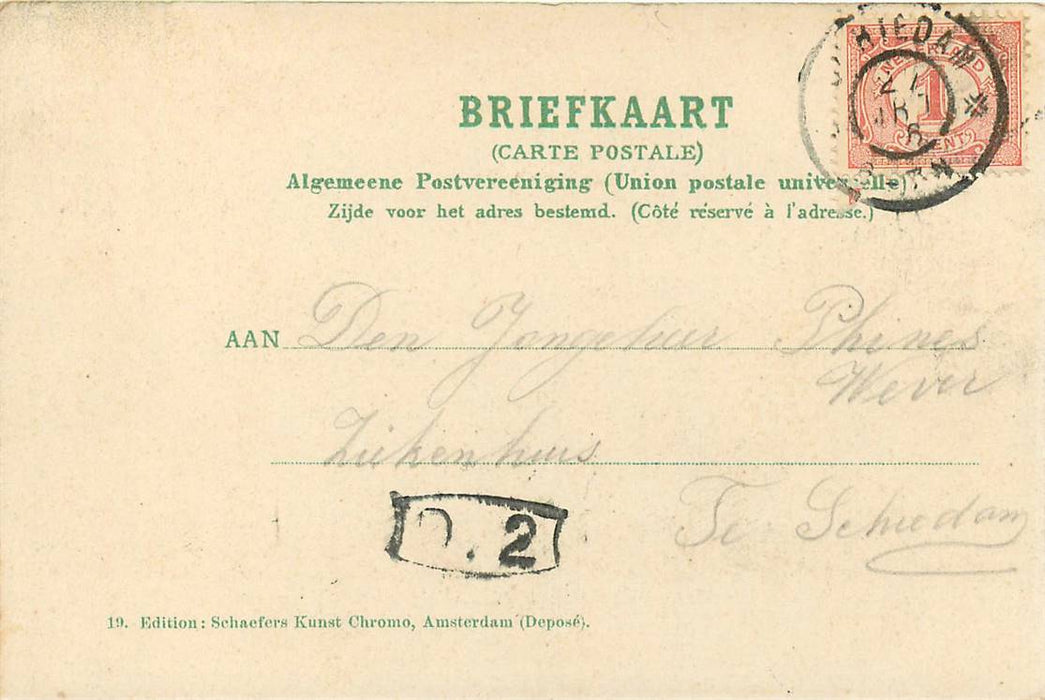 BRIEFKAART
(CARTE POSTALE)
Algemeene Postvereeniging (Union postale universelle)
Zijde voor het adres bestemd. (Côté réservé à l'adresse.)
AAN Den Jongeheer Phines
Wever
Ziekenhuis
Te Schiedam
2
19. Edition: Schaefers Kunst Chromo, Amsterdam (Deposé).
SCHIEDAM
NEDERLAND
1
CENT